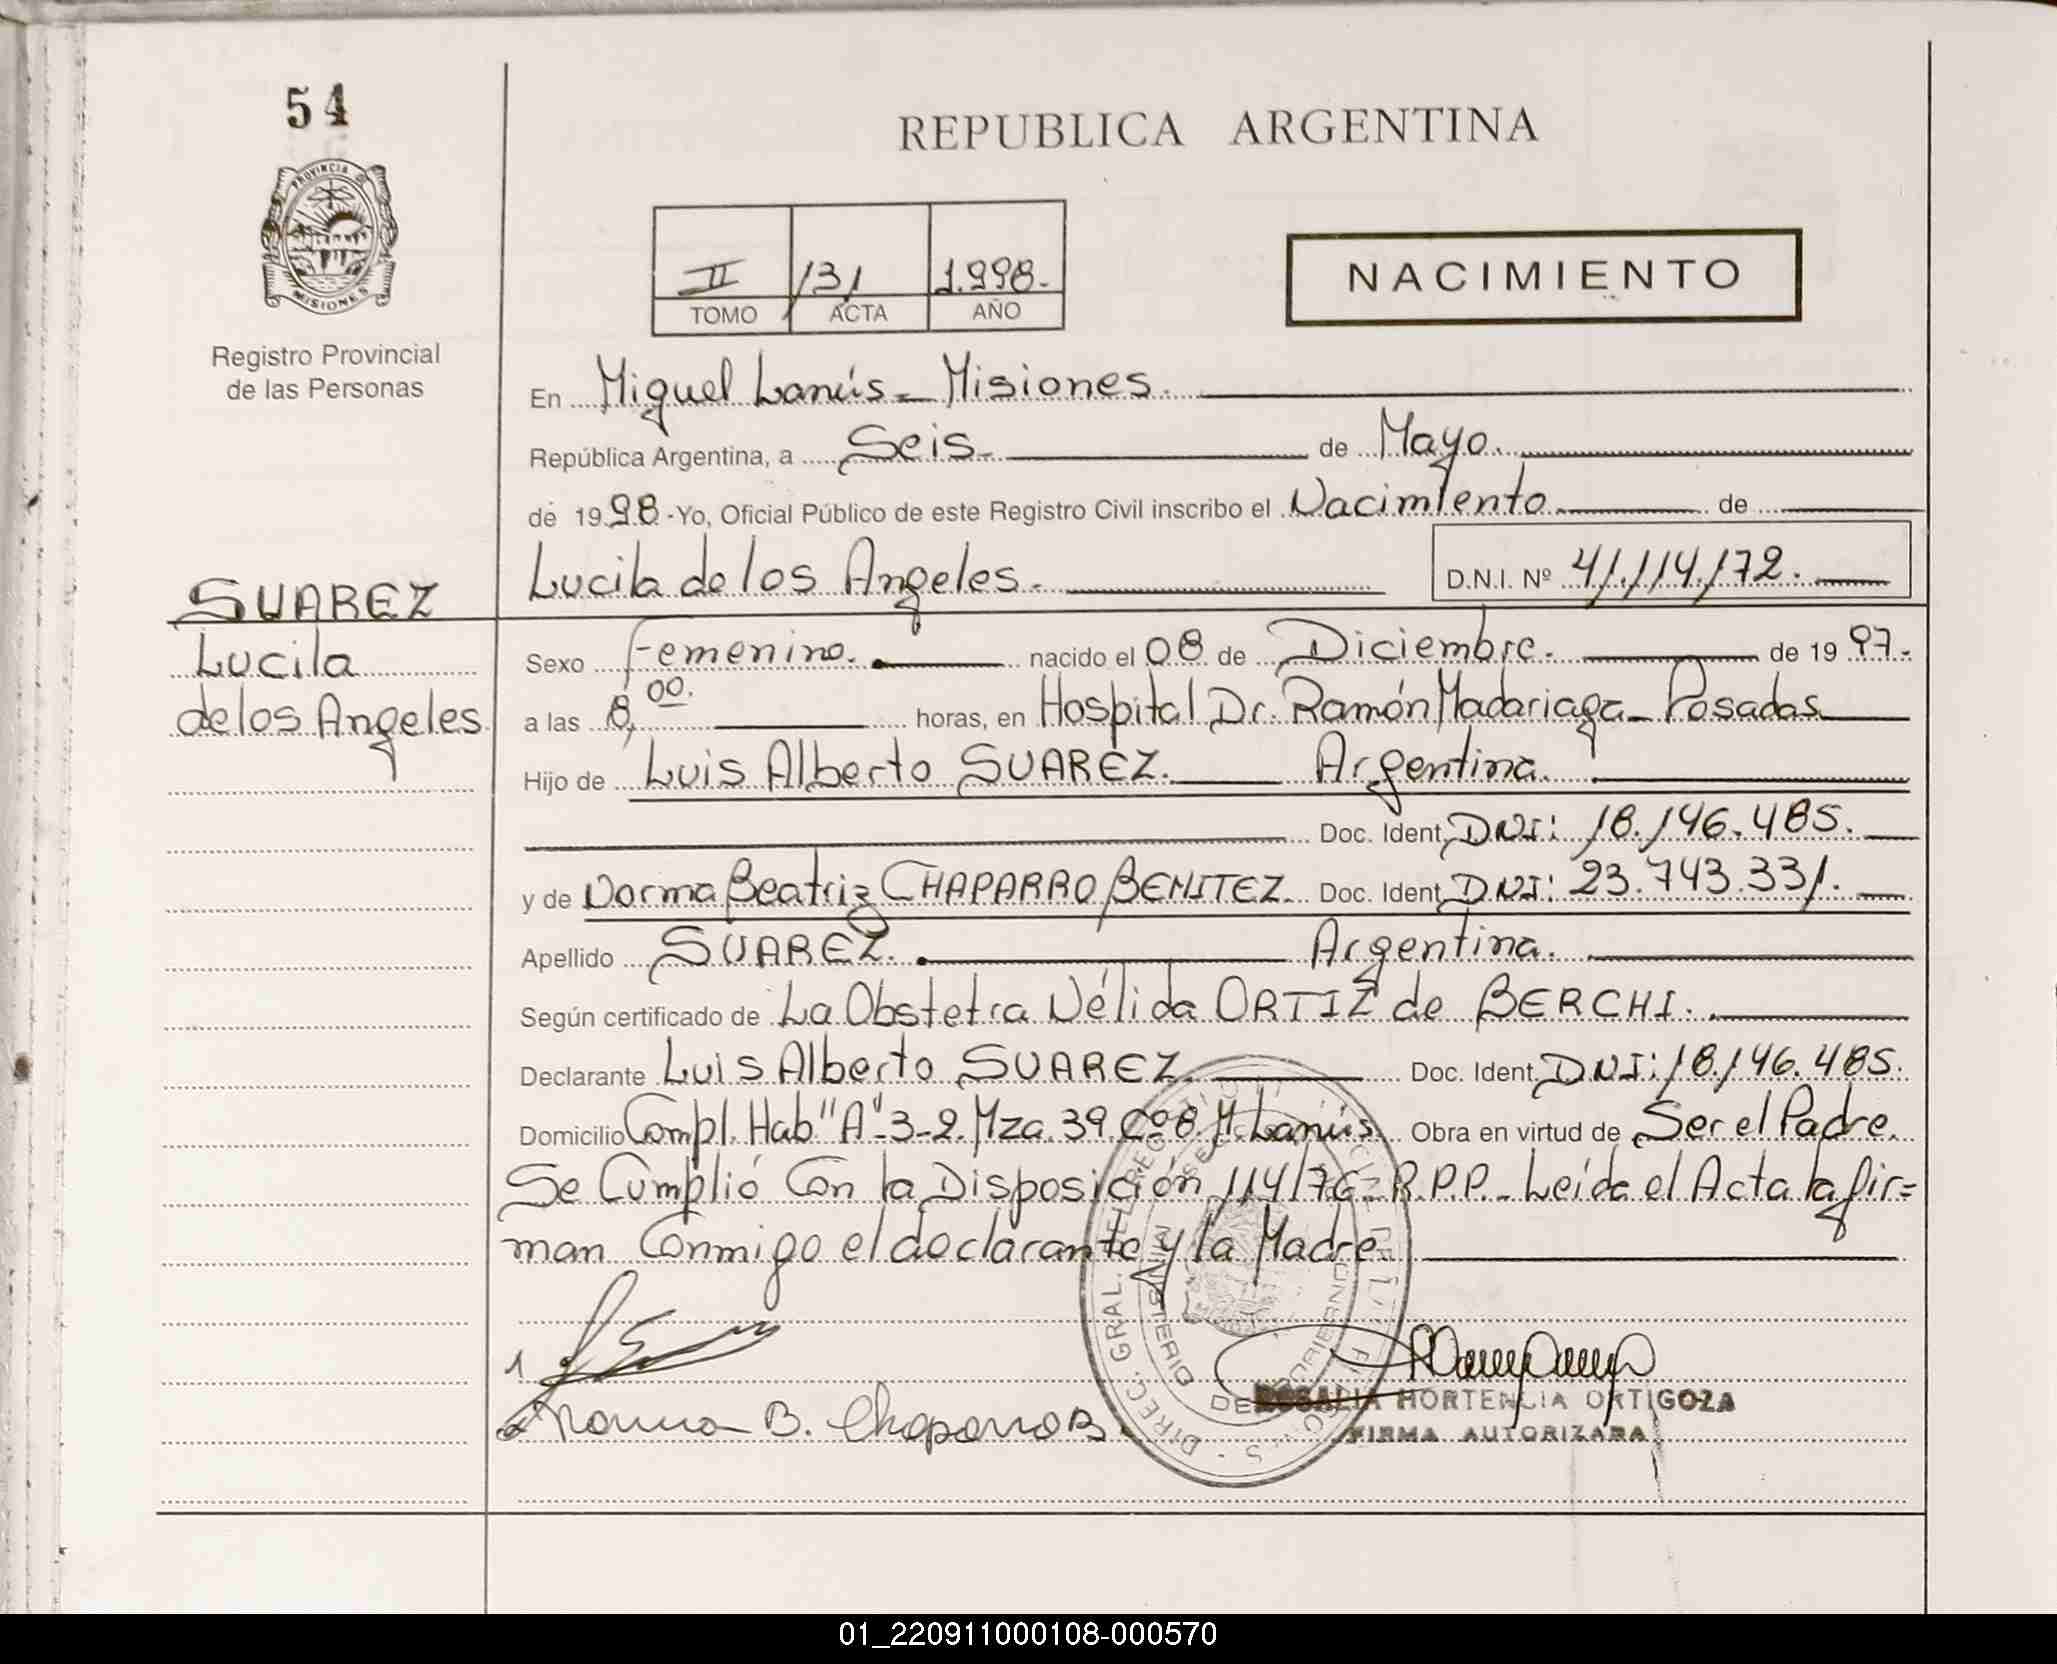 54
REPUBLICA ARGENTINA
PROVINCIA DE
MISIONES
Registro Provincial
de las Personas
II 131 1.998.-
TOMO ACTA AÑO
NACIMIENTO
En Miguel Lanús - Misiones.
República Argentina, a Seis.- de Mayo.
de 1998.-Yo, Oficial Público de este Registro Civil inscribo el Nacimiento de
Lucila de los Angeles.- D.N.I. Nº 41.114.172.
SUAREZ
Lucila
de los Angeles
Sexo Femenino. nacido el 08 de Diciembre. de 1997.-
a las 8,00. horas, en Hospital Dr. Ramón Madariaga - Posadas
Hijo de Luis Alberto SUAREZ. Argentina.
Doc. Ident. DNI: 18.146.485.
y de Norma Beatriz CHAPARRO BENITEZ. Doc. Ident. DNI: 23.743.331.
Apellido SUAREZ. Argentina.
Según certificado de La Obstetra Nélida ORTIZ de BERCHI.
Declarante Luis Alberto SUAREZ. Doc. Ident. DNI: 18.146.485.
Domicilio Compl. Hab "A"-3-2. Mza. 39. Cº 8. M. Lanús. Obra en virtud de Ser el Padre.
Se Cumplió Con la Disposición 114/76 - R.P.P. - Leída el Acta la fir=
man Conmigo el declarante y la Madre.
Norma B. Chaparro B.
DIREC. GRAL. DEL REGISTRO
MINISTERIO DE GOBIERNO
ROSALIA HORTENCIA ORTIGOZA
FIRMA AUTORIZADA
01_220911000108-000570